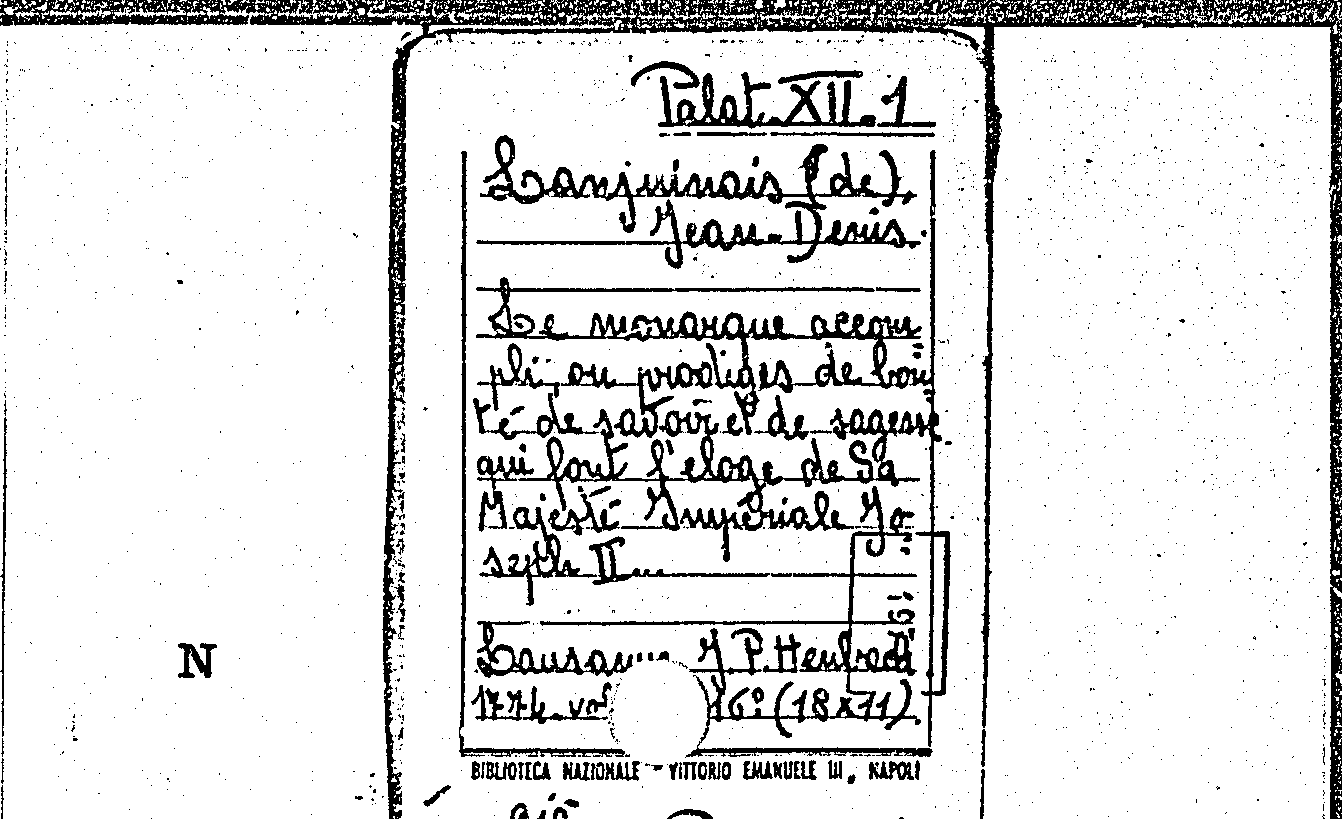 Palat. XII. 1
Lanjuinais (de),
Jean-Denis.
Le monarque accom
pli, ou prodiges de bon
té de savoir et de sagesse
qui font l'eloge de Sa
Majesté Impériale Jo-
seph II...
Lausanne J. P. Heubach
1774. vol 16º (18x11)
N
BIBLIOTECA NAZIONALE - VITTORIO EMANUELE III, NAPOLI
già